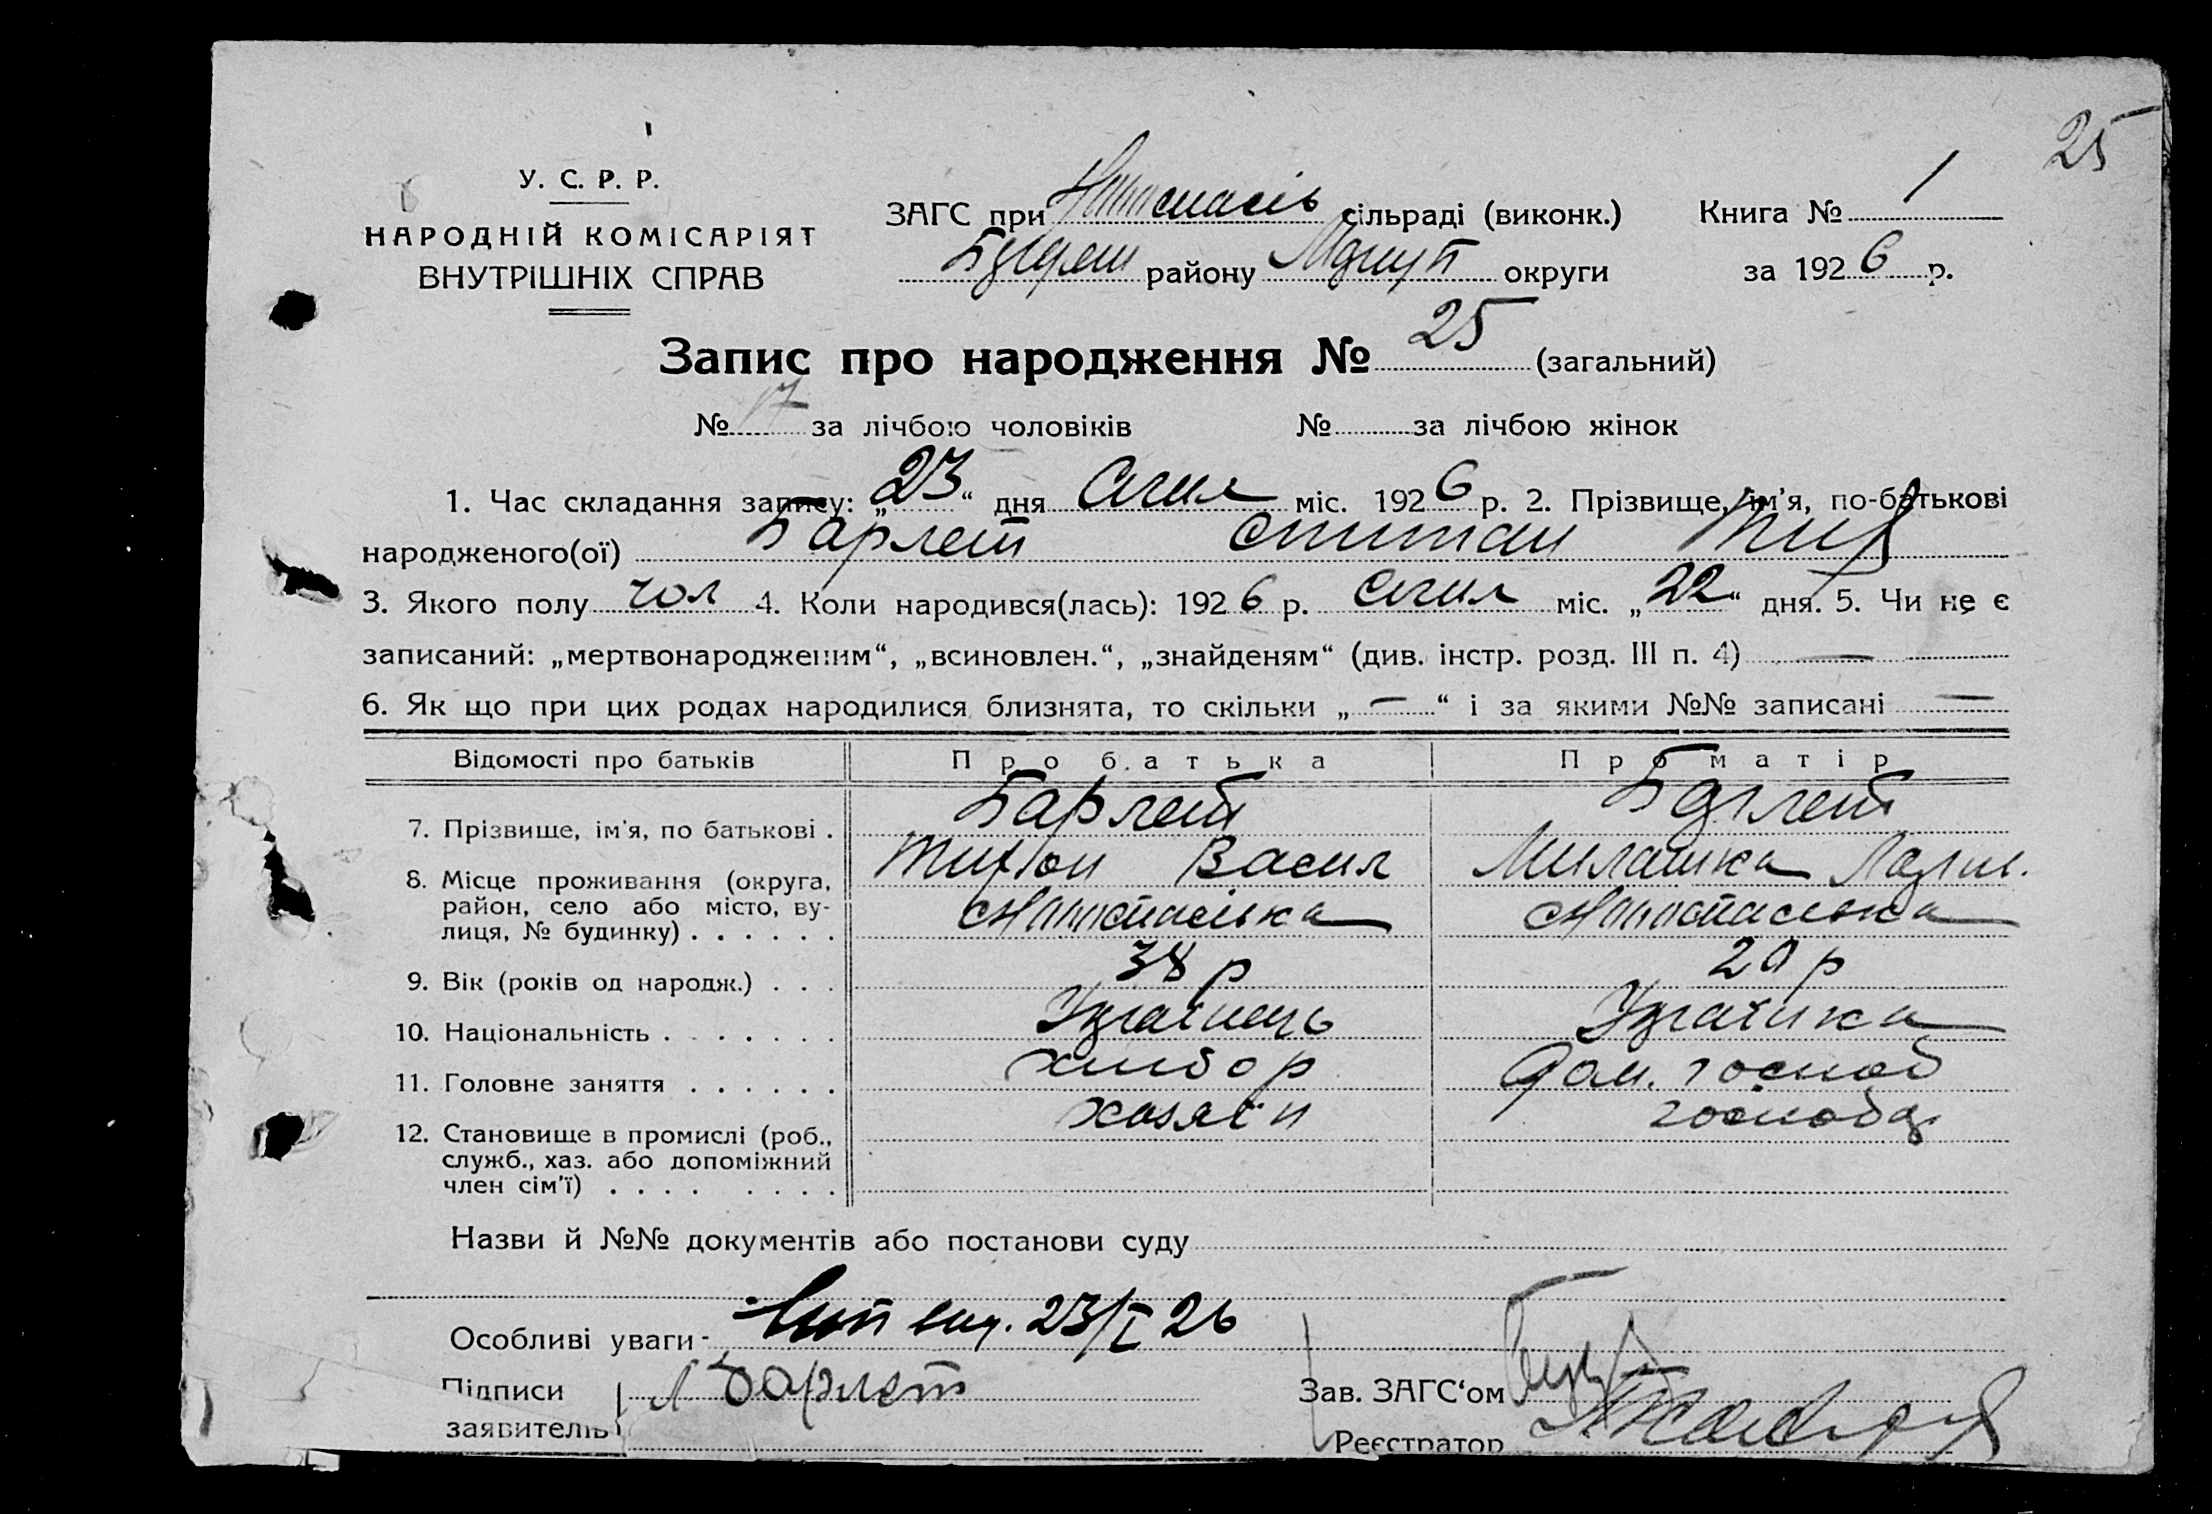 25
У. С. Р. Р.
НАРОДНІЙ КОМІСАРІЯТ
ВНУТРІШНІХ СПРАВ
ЗАГС при сільраді (виконк.) Книга № 1
району округи за 1926 р.
Запис про народження № 25 (загальний)
№ 17 за лічбою чоловіків № за лічбою жінок
1. Час складання запису: „23“ дня Січня міс. 1926 р. 2. Прізвище, ім'я, по-батькові
народженого(ої) Барлет
3. Якого полу чол 4. Коли народився(лась): 1926 р. Січня міс. „22“ дня. 5. Чи не є
записаний: „мертвонародженим“, „всиновлен.“, „знайденям“ (див. інстр. розд. III п. 4) —
6. Як що при цих родах народилися близнята, то скільки „—“ і за якими №№ записані —
Відомості про батьків Про батька Про матір
7. Прізвище, ім'я, по батькові . Барлет Барлет
Тихон Васил
8. Місце проживання (округа,
район, село або місто, ву-
лиця, № будинку) . . . . . .
9. Вік (років од народж.) . . . 38 р р
10. Національність . . . . . . . Українець Українка
11. Головне заняття . . . . . . хлібор Дом. господ
12. Становище в промислі (роб., хазяїн господ
служб., хаз. або допоміжний
член сім'ї) . . . . . . . .
Назви й №№ документів або постанови суду
Особливі уваги - 23/I 26
Підписи Барлет Зав. ЗАГС‘ом
заявителів Реєстратор